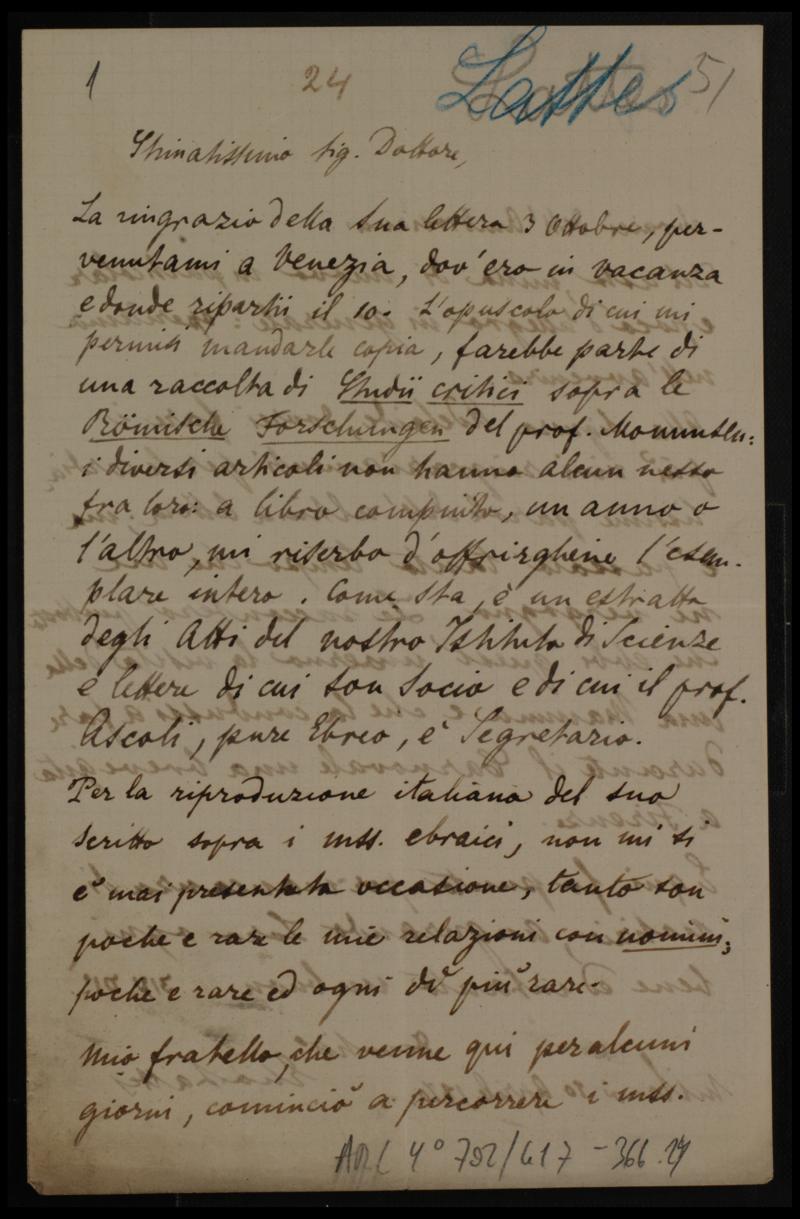 1 24 Lattes 51
Stimatissimo Sig. Dottore,
La ringrazio della sua lettera 3 Ottobre, per-
venutami a Venezia, dov'ero in vacanza
e donde ripartii il 10. L'opuscolo di cui mi
permisi mandarle copia, farebbe parte di
una raccolta di Studii critici sopra le
Römische Forschungen del prof. Mommsen:
i diversi articoli non hanno alcun nesso
fra loro: a libro compiuto, un anno o
l'altro, mi riserbo d'offrirghene l'esem-
plare intero. Come sta, è un estratto
degli Atti del nostro Istituto di Scienze
e lettere di cui son Socio e di cui il prof.
Ascoli, pure Ebreo, è Segretario.
Per la riproduzione italiana del suo
scritto sopra i mss. ebraici, non mi si
è mai presentata occasione, tanto son
poche e rare le mie relazioni con uomini;
poche e rare ed ogni dì più rare.
Mio fratello, che venne qui per alcuni
giorni, cominciò a percorrere i mss.
4° 792/617 - 366.24